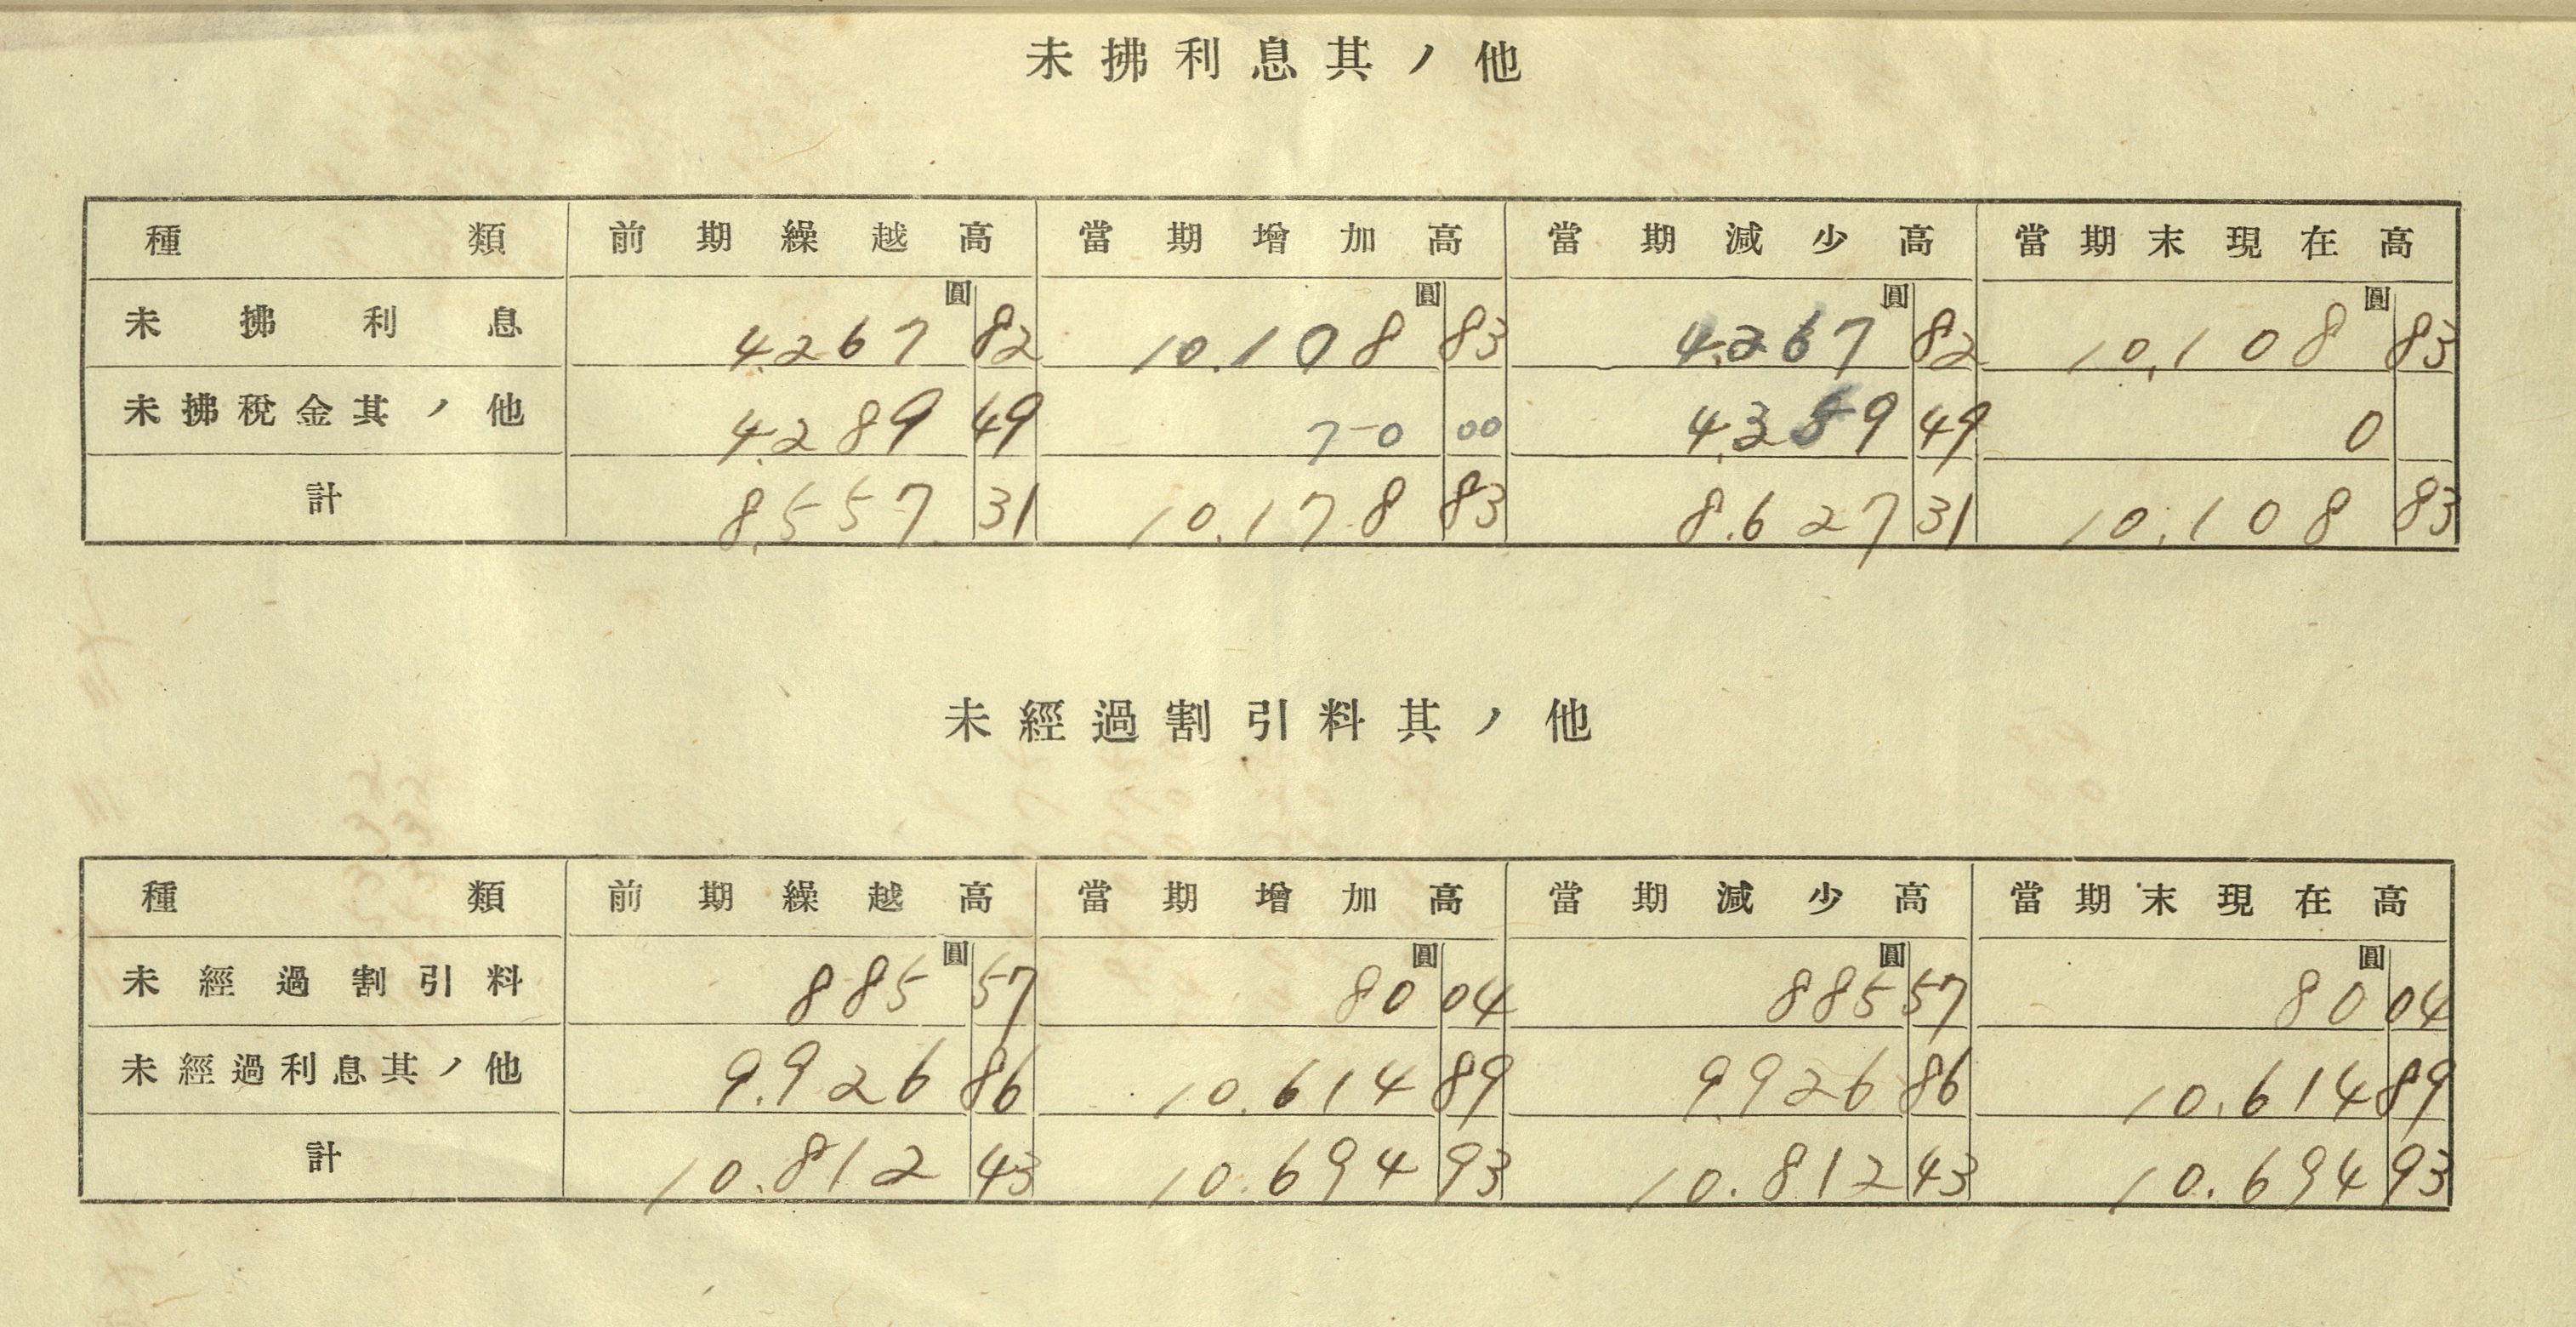 未拂利息其ノ他
種類 前期繰越高 當期增加高 當期減少高 當期末現在高
圓 圓 圓 圓
未拂利息 4.267 82 10.108 83 4.267 82 10,108 83
未拂稅金其ノ他 4.289 49 70 00 4,359 49 0
計 8,557 31 10.178 83 8.627 31 10,108 83
未經過割引料其ノ他
種類 前期繰越高 當期增加高 當期減少高 當期末現在高
圓 圓 圓 圓
未經過割引料 885 57 80 04 885 57 80 04
未經過利息其ノ他 9.926 86 10.614 89 9.926 86 10.614 89
計 10.812 43 10.694 93 10.812 43 10.694 93